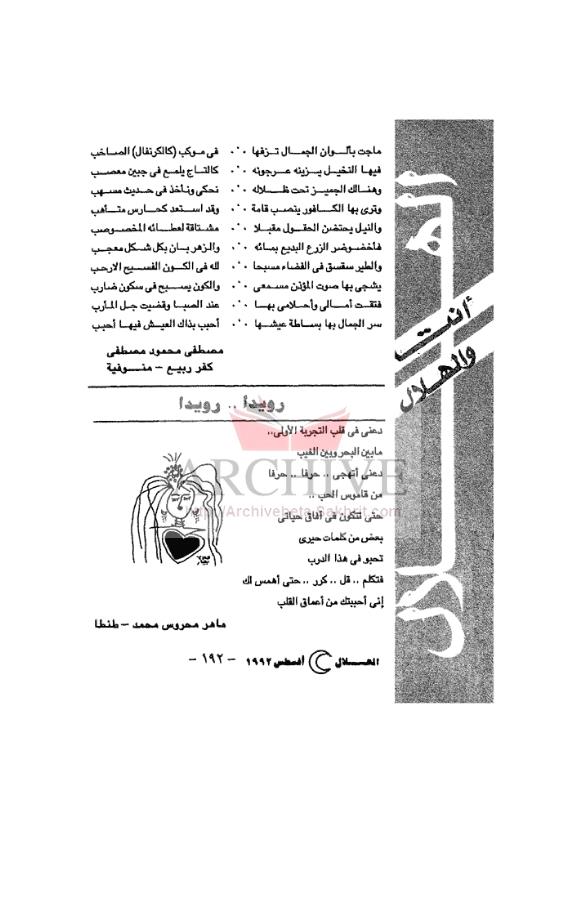 ماجت بألوان الجمال تزفها ٠°٠ فى موكب (كالكرنفال) الصاخب
فيها النخيل يزينه عرجونه ٠°٠ كالتاج يلمع فى جبين معصب
وهناك الجميز تحت ظلاله ٠°٠ نحكى ونأخذ فى حديث مسهب
وترى بها الكافور ينصب قامة ٠°٠ وقد استعد كحارس متأهب
والنيل يحتضن الحقول مقبلا ٠°٠ مشتاقة لعطائه المخصوصب
فأخضوضر الزرع البديع بمائه ٠°٠ والزهر بان بكل شكل معجب
والطير سقسق فى الفضاء مسبحا ٠°٠ لله فى الكون الفسيح الارحب
يشجى بها صوت المؤذن مسمعى ٠°٠ والكون يسبح فى سكون ضارب
فتقت أمالى وأحلامى بها ٠°٠ عند الصبا وقضيت جل المأرب
سر الجمال بها بساطة عيشها ٠°٠ أحبب بذاك العيش فيها أحبب
مصطفى محمود مصطفى
كفر ربيع - منوفية
رويدا .. رويدا
دعنى فى قلب التجربة الأولى..
مابين البحر وبين الغيب
دعنى أتهجى .. حرفا .. حرفا
من قاموس الحب ..
حتى تتكون فى آفاق حياتى
بعض من كلمات حيرى
تحبو فى هذا الدرب
فتكلم .. قل .. كرر .. حتى أهمس لك
إنى أحببتك من أعماق القلب
ماهر محروس محمد - طنطا
الهلال أغسطس ١٩٩٢ - ١٩٢ -
الهلال
أنت
والهلال
ARCHIVE
http://Archivebeta.Sakhrit.com